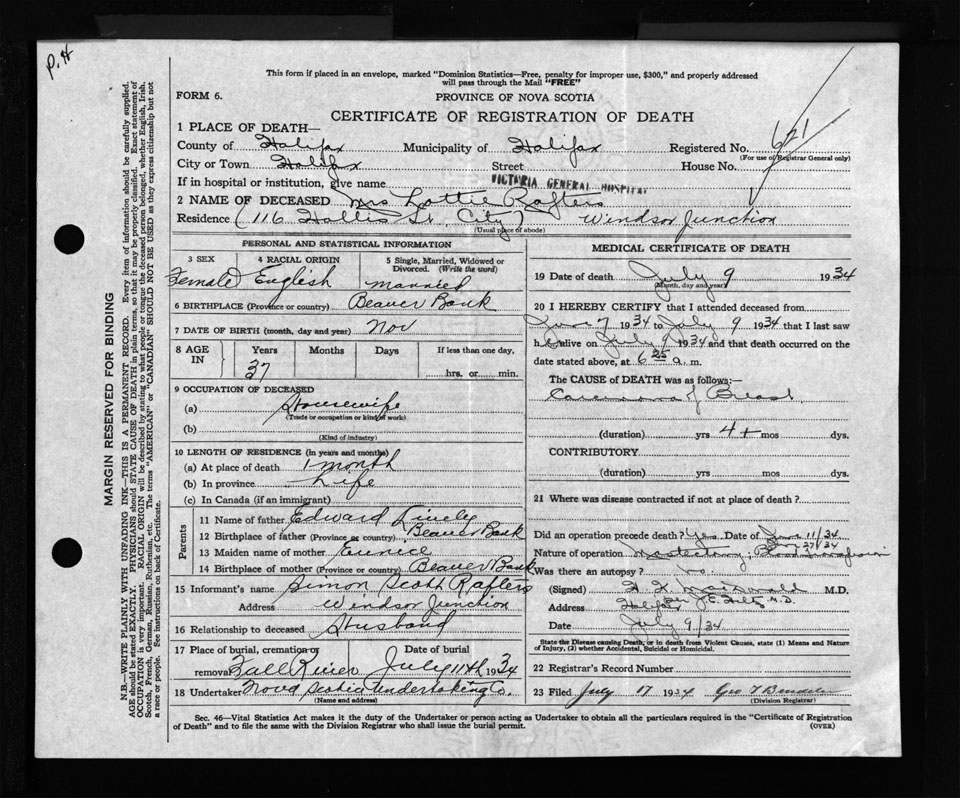 P.H
This form if placed in an envelope, marked "Dominion Statistics—Free, penalty for improper use, $300," and properly addressed
will pass through the Mail "FREE"
FORM 6.
PROVINCE OF NOVA SCOTIA
CERTIFICATE OF REGISTRATION OF DEATH
1 PLACE OF DEATH—
County of Halifax Municipality of Halifax Registered No. 621
(For use of Registrar General only)
City or Town Halifax Street House No.
If in hospital or institution, give name VICTORIA GENERAL HOSPITAL
2 NAME OF DECEASED Mrs Lottie Rafters
Residence (116 Hollis St. City) Windsor Junction
(Usual place of abode)
PERSONAL AND STATISTICAL INFORMATION
3 SEX 4 RACIAL ORIGIN 5 Single, Married, Widowed or
Divorced. (Write the word)
Female English Married
6 BIRTHPLACE (Province or country) Beaver Bank
7 DATE OF BIRTH (month, day and year) Nov
8 AGE IN Years Months Days If less than one day,
37 hrs. or min.
9 OCCUPATION OF DECEASED
(a) Housewife
(Trade or occupation or kind of work)
(b)
(Kind of industry)
10 LENGTH OF RESIDENCE (in years and months)
(a) At place of death 1 month
(b) In province Life
(c) In Canada (if an immigrant)
Parents
11 Name of father Edward Lively
12 Birthplace of father (Province or country) Beaver Bank
13 Maiden name of mother Eunice
14 Birthplace of mother (Province or country) Beaver Bank
15 Informant's name Simon Scott Rafters
Address Windsor Junction
16 Relationship to deceased Husband
17 Place of burial, cremation or Date of burial
removal Fall River July 11th 1934
18 Undertaker Nova Scotia Undertaking Co.
(Name and address)
MEDICAL CERTIFICATE OF DEATH
19 Date of death July 9 1934
(Month, day and year)
20 I HEREBY CERTIFY that I attended deceased from
June 7 1934 to July 9 1934 that I last saw
h er alive on July 9 1934 and that death occurred on the
date stated above, at 6 25 a. m.
The CAUSE of DEATH was as follows:—
Carcinoma of Breast
(duration) yrs 4+ mos dys.
CONTRIBUTORY
(duration) yrs mos dys.
21 Where was disease contracted if not at place of death ?
Did an operation precede death? Yes Date of June 11/34
27/34
Nature of operation Mastectomy; Blood Transfusion
Was there an autopsy ? no
(Signed) M.D.
Address Halifax M.D.
Date July 9/34
State the Disease causing Death, or in death from Violent Causes, state (1) Means and Nature
of Injury, (2) whether Accidental, Suicidal or Homicidal.
22 Registrar's Record Number
23 Filed July 17 1934 Geo
(Division Registrar)
Sec. 46—Vital Statistics Act makes it the duty of the Undertaker or person acting as Undertaker to obtain all the particulars required in the "Certificate of Registration
of Death" and to file the same with the Division Registrar who shall issue the burial permit. (OVER)
MARGIN RESERVED FOR BINDING
N.B.—WRITE PLAINLY WITH UNFADING INK—THIS IS A PERMANENT RECORD. Every item of information should be carefully supplied.
AGE should be stated EXACTLY. PHYSICIANS should STATE CAUSE OF DEATH in plain terms, so that it may be properly classified. Exact statement of
OCCUPATION is very important. RACIAL ORIGIN will be described by stating to what people or tongue the deceased person belonged, whether English, Irish,
Scotch, French, German, Russian, Ruthenian, etc. The terms "AMERICAN" or "CANADIAN" SHOULD NOT BE USED as they express citizenship but not
a race or people. See instructions on back of Certificate.